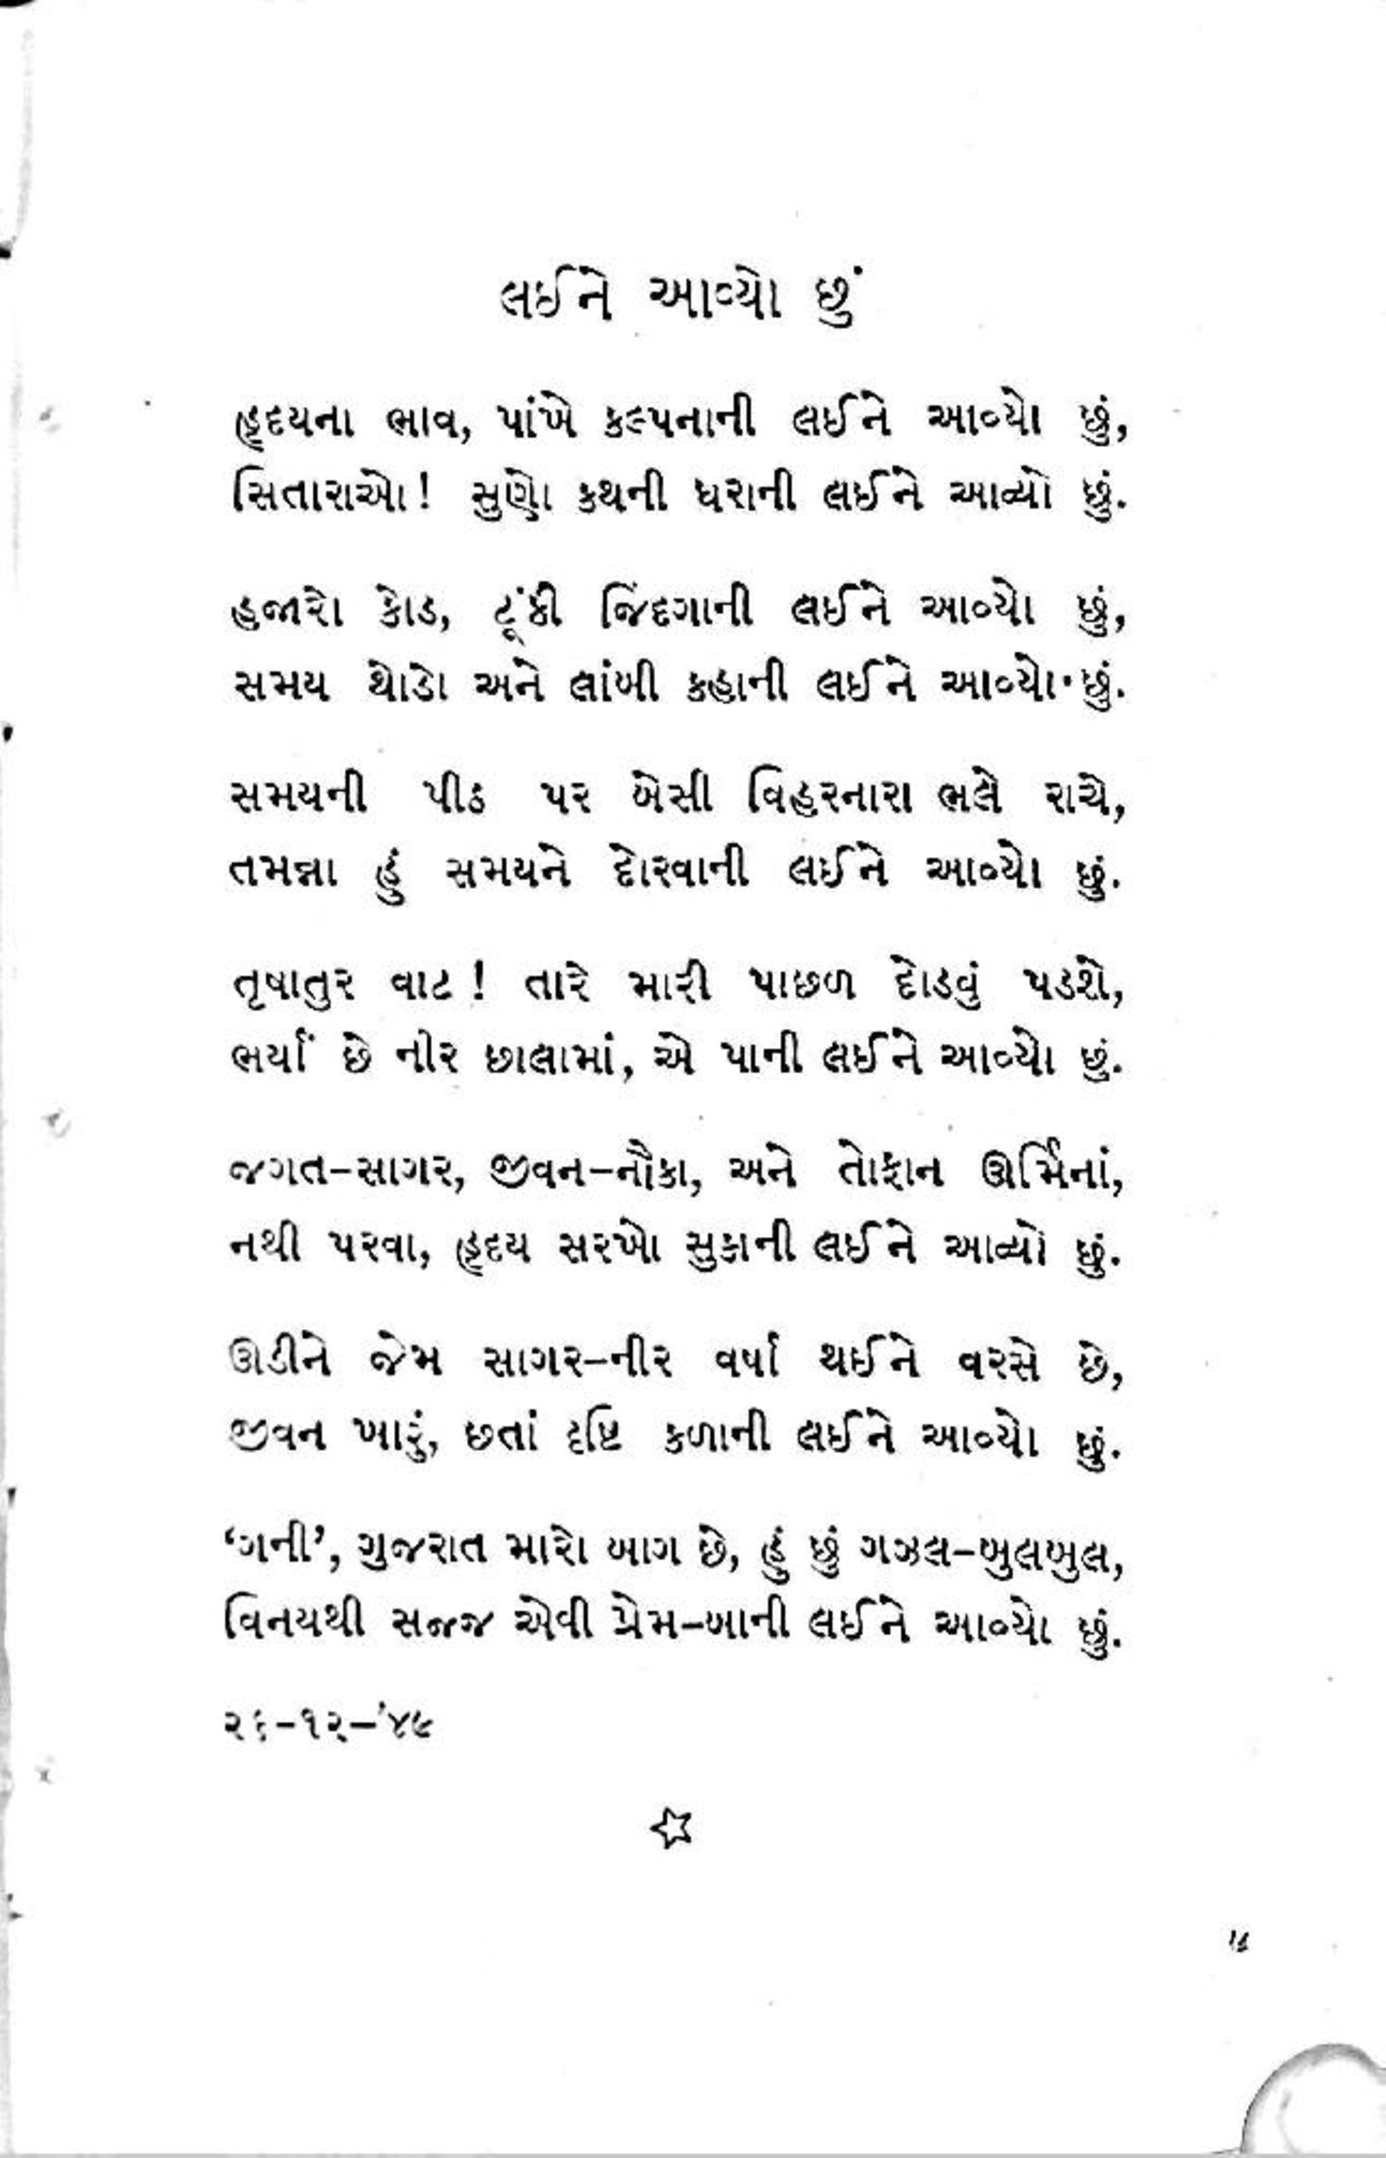 લઈને આવ્યો છું
હૃદયના ભાવ, પાંખે કલ્પનાની લઈને આવ્યો છું,
સિતારાઓ! સુણો કથની ધરાની લઈને આવ્યો છું.
હજારો કોડ, ટૂંકી જિંદગાની લઈને આવ્યો છું,
સમય થોડો અને લાંબી કહાની લઈને આવ્યો છું.
સમયની પીઠ પર બેસી વિહરનારા ભલે રાચે,
તમન્ના હું સમયને દોરવાની લઈને આવ્યો છું.
તૃષાતુર વાટ! તારે મારી પાછળ દોડવું પડશે,
ભર્યાં છે નીર છાલામાં, એ પાની લઈને આવ્યો છું.
જગત-સાગર, જીવન-નૌકા, અને તોફાન ઊર્મિનાં,
નથી પરવા, હૃદય સરખો સુકાની લઈને આવ્યો છું.
ઊડીને જેમ સાગર-નીર વર્ષા થઈને વરસે છે,
જીવન ખારું, છતાં દૃષ્ટિ કળાની લઈને આવ્યો છું.
‘ગની’, ગુજરાત મારો બાગ છે, હું છું ગઝલ-બુલબુલ,
વિનયથી સજ્જ એવી પ્રેમ-બાની લઈને આવ્યો છું.
૨૬-૧૨-'૪૯